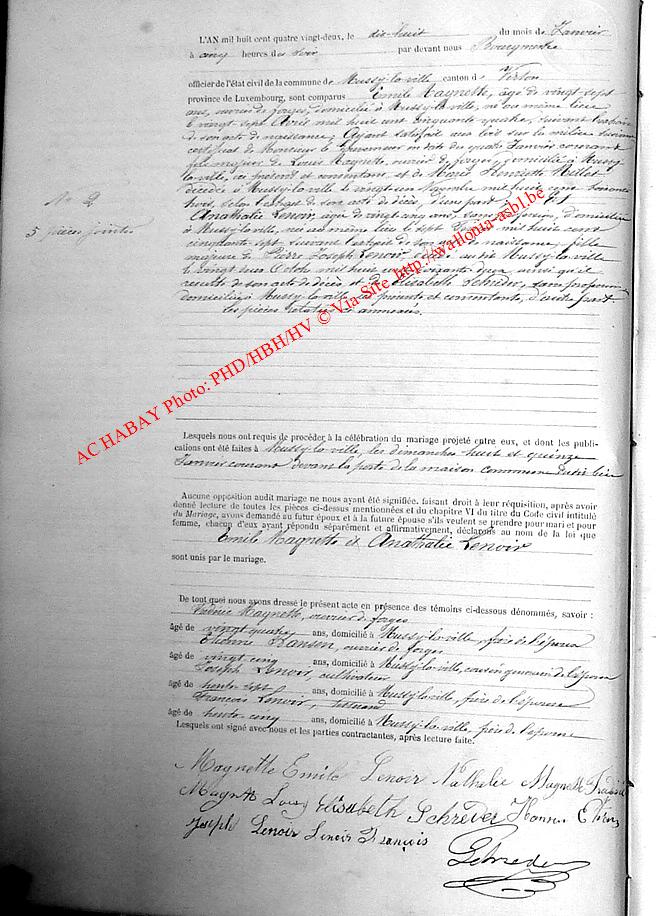 L'AN mil huit cent quatre vingt-deux, le dix-huit du mois de Janvier
à cinq heures du soir par devant nous Bourgmestre
officier de l'état civil de la commune de Mussy-la-ville canton de Virton
province de Luxembourg, sont comparus Emile Magnette, âgé de vingt-sept
ans, ouvrier de forges, domicilié à Mussy-la-ville, né au même lieu
le vingt-sept Avril mil huit cent cinquante quatre, suivant l'extrait
de son acte de naissance; Ayant satisfait aux lois sur la milice suivant
certificat de Monsieur le Gouverneur en date du quatre Janvier courant
fils majeur de Louis Magnette, ouvrier de forges, domicilié à Mussy-
la-ville, ici présent et consentant, et de Marie Henriette
décédée à Mussy-la-ville le vingt-un Novembre mil huit cent soixante
trois, selon l'extrait de son acte de décès, d'une part; Et
Anathalie Lenoir, âgée de vingt cinq ans, sans profession, domiciliée
à Mussy-la-ville, née au même lieu le sept mil huit cent
cinquante sept, suivant l'extrait de son acte de naissance, fille
majeure de Pierre Joseph Lenoir, décédé au dit Mussy-la-ville
le vingt deux Octobre mil huit cent soixante ainsi qu'il
résulte de son acte de décès et d'Elisabeth Schréder, sans profession
domiciliée à Mussy-la-ville, ici présente et consentante, d'autre part
Les pièces annexées.
No 2
5 pièces jointes
AC HABAY Photo: PHD/HBH/HV © Via-Site http://wallonia-asbl.be
Lesquels nous ont requis de procéder à la célébration du mariage projeté entre eux, et dont les publi-
cations ont été faites à Mussy-la-ville, les dimanches huit et quinze
Janvier courant devant la porte de la maison commune dudit lieu
Aucune opposition audit mariage ne nous ayant été signifiée, faisant droit à leur réquisition, après avoir
donné lecture de toutes les pièces ci-dessus mentionnées et du chapitre VI du titre du Code civil intitulé
du Mariage, avons demandé au futur époux et à la future épouse s'ils veulent se prendre pour mari et pour
femme, chacun d'eux ayant répondu séparément et affirmativement, déclarons au nom de la loi que
Emile Magnette et Anathalie Lenoir
sont unis par le mariage.
De tout quoi nous avons dressé le présent acte en présence des témoins ci-dessous dénommés, savoir :
Magnette, ouvrier de forges
âgé de vingt quatre ans, domicilié à Mussy-la-ville, frère de l'époux
Etienne Hanson, ouvrier de forges
âgé de vingt cinq ans, domicilié à Mussy-la-ville, cousin germain de l'époux
Joseph Lenoir, cultivateur
âgé de trente sept ans, domicilié à Mussy-la-ville, frère de l'épouse
François Lenoir, tisserand
âgé de trente-cinq ans, domicilié à Mussy-la-ville, frère de l'épouse
Lesquels ont signé avec nous et les parties contractantes, après lecture faite.
Magnette Emile Lenoir Nathalie Magnette
Magnette Louis Elisabeth Schréder
Joseph Lenoir Lenoir François
Schréder